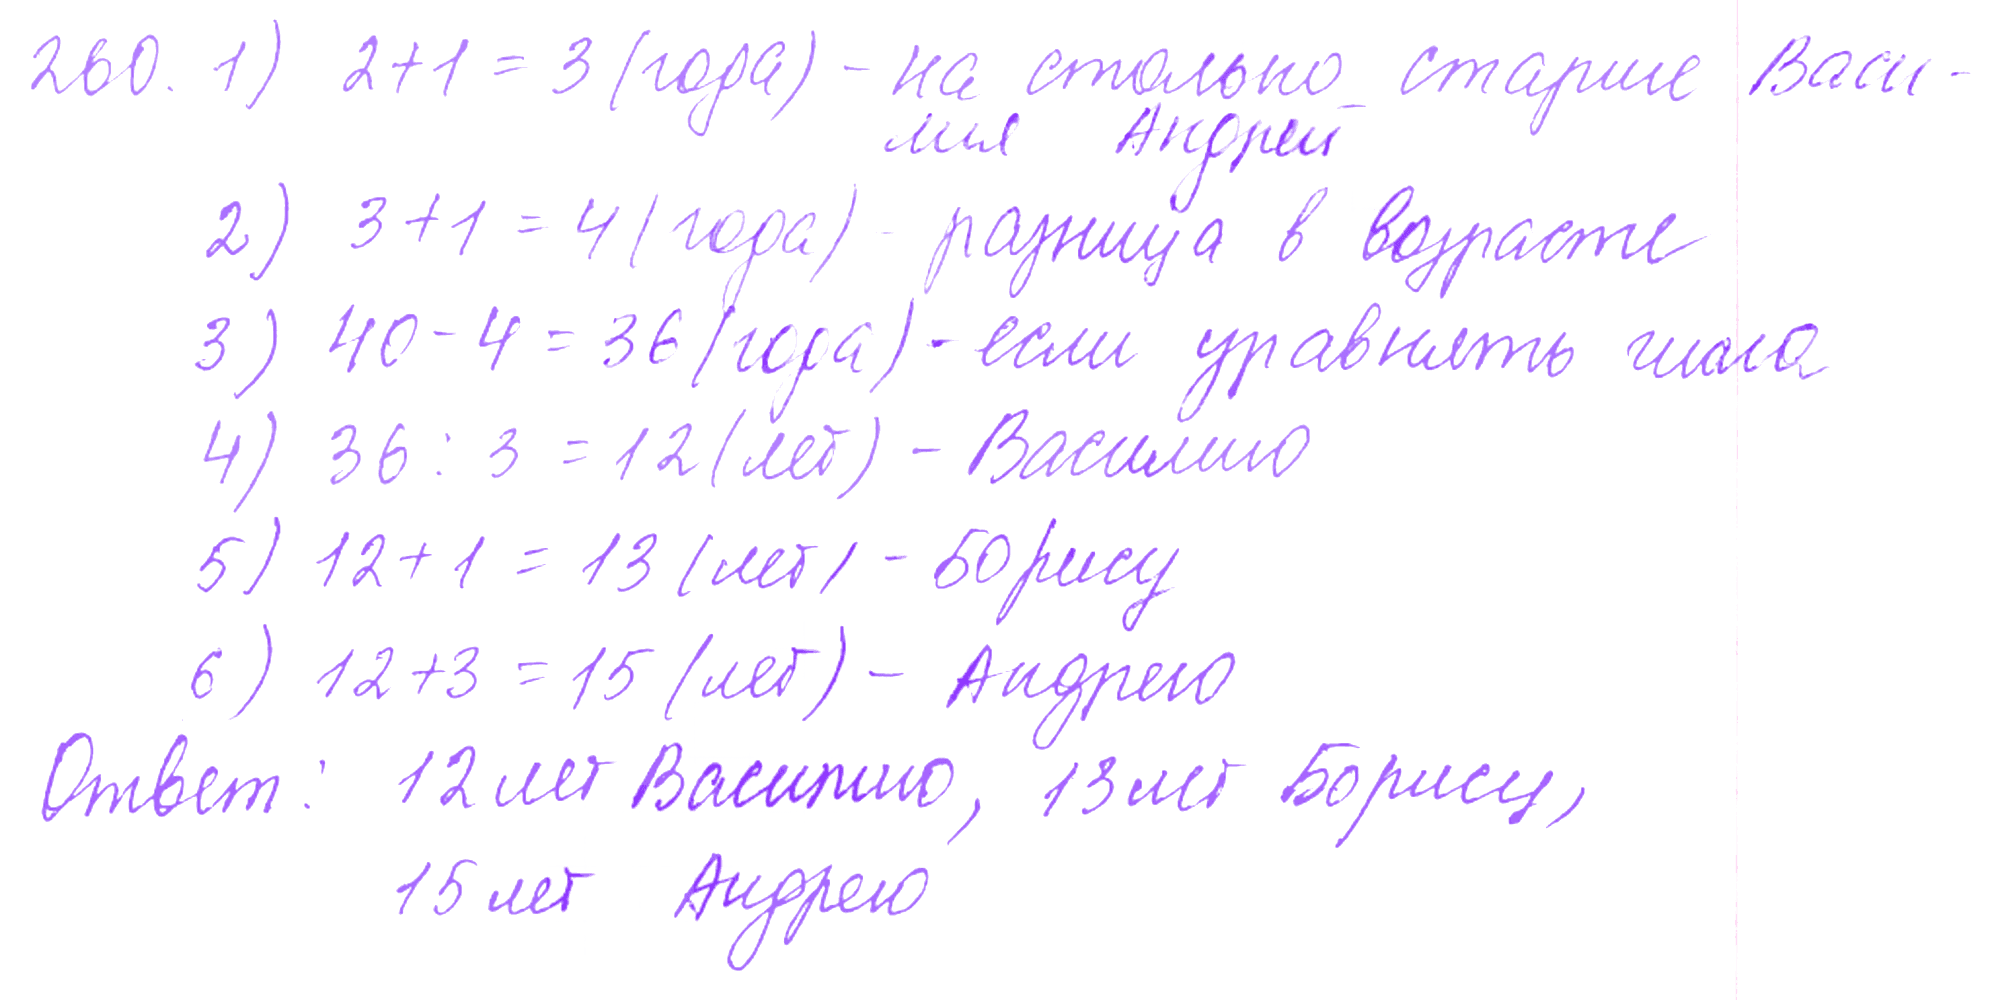 260. 1) 2+1=3 (года) - на столько старше Васи-
лия Андрей
2) 3+1=4 (года) - разница в возрасте
3) 40-4=36 (года) - если уравнять числа
4) 36:3=12 (лет) - Василию
5) 12+1=13 (лет) - Борису
6) 12+3=15 (лет) - Андрею
Ответ: 12 лет Василию, 13 лет Борису,
15 лет Андрею